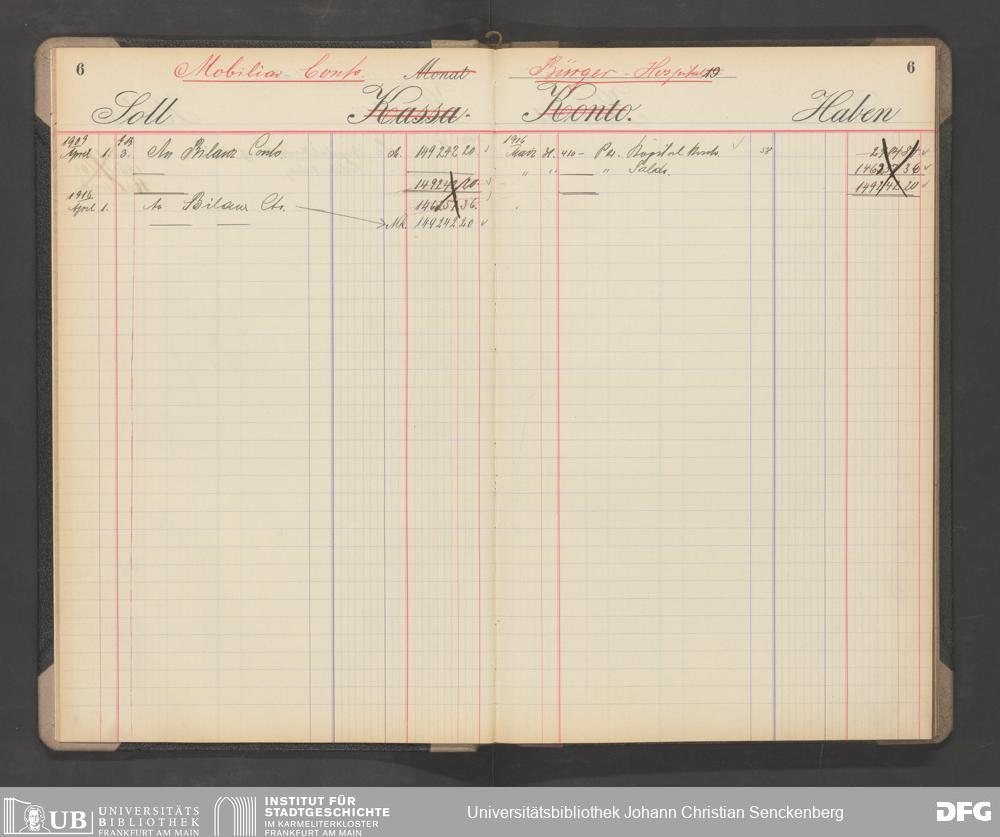 6
Mobiliar-Conto
Monat
Soll
Kassa.
1909
April 1. 3. An Bilanz Conto 149242 20
149242 20
1916
April 1. An Bilanz Cto. 36
Mk. 149242 20
Bürger-Hospital 19
6
Konto.
Haben
1916
März 31. 410 – Per Kapital Konto
" " " Saldo. 36
149242 20
UB UNIVERSITÄTS
BIBLIOTHEK
FRANKFURT AM MAIN
INSTITUT FÜR
STADTGESCHICHTE
IM KARMELITERKLOSTER
FRANKFURT AM MAIN
Universitätsbibliothek Johann Christian Senckenberg
DFG